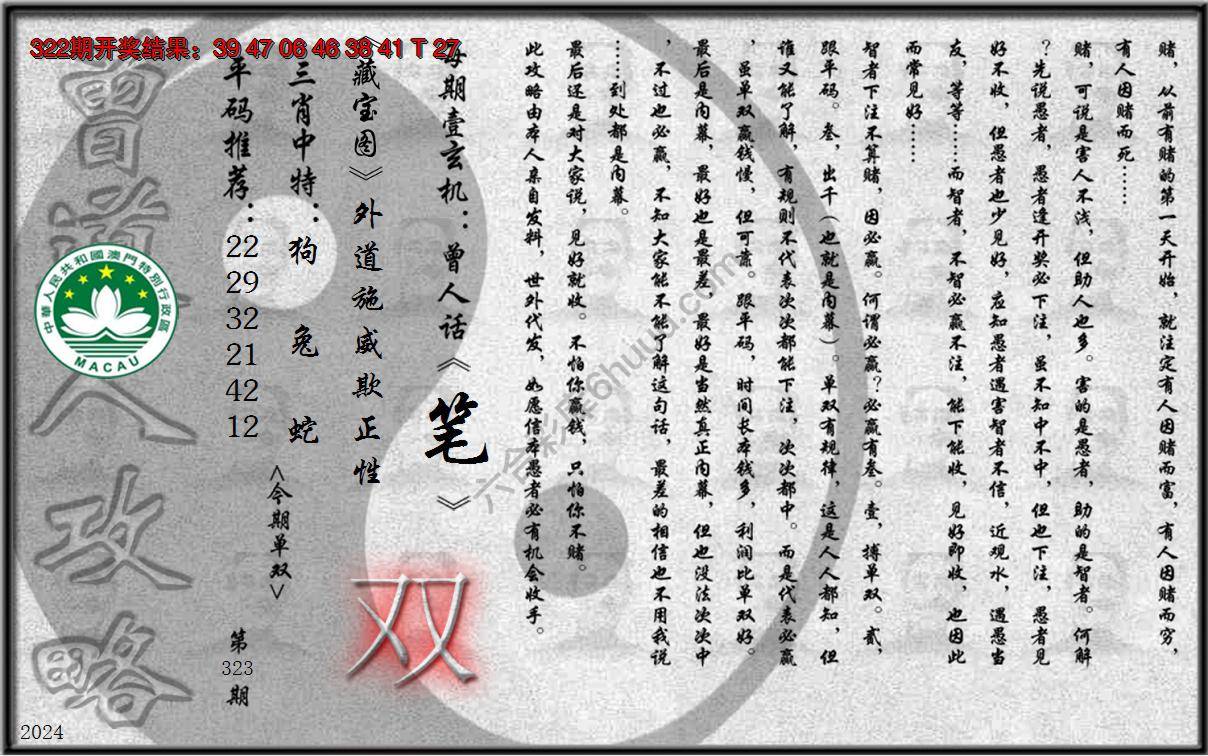 322期开奖结果：39 47 06 46 38 41 T 27
赌，从前有赌的第一天开始，就注定有人因赌而富，有人因赌而穷，
有人因赌而死……
赌，可说是害人不浅，但助人也多。害的是愚者，助的是智者。何解
？先说愚者，愚者逢开奖必下注，虽不知中不中，但也下注，愚者见
好不收，但愚者也少见好，应知愚者遇害智者不信，近观水，遇愚当
友，等等……而智者，不智必赢不注，能下能收，见好即收，也因此
而常见好……
智者下注不算赌，因必赢。何谓必赢？必赢有叁。壹，搏单双。贰，
跟平码。叁，出千（也就是内幕）。单双有规律，这是人人都知，但
谁又能了解，有规则不代表次次都能下注，次次都中。而是代表必赢
，虽单双赢钱慢，但可靠。跟平码，时间长本钱多，利润比单双好。
最后是内幕，最好也是最差，最好是当然真正内幕，但也没法次次中
，不过也必赢，不知大家能不能了解这句话，最差的相信也不用我说
……到处都是内幕。
最后还是对大家说，见好就收。不怕你赢钱，只怕你不赌。
此攻略由本人亲自发料，世外代发，如愿信本愚者必有机会收手。
每期壹玄机：曾人话《笔》
《藏宝图》外道施威欺正性
三肖中特：狗 兔 蛇
平码推荐：22 29 32 21 42 12
<今期单双>
双
第323期
曾道人攻略
中華人民共和國澳門特別行政區
MACAU
六合彩库6huuu.com
2024